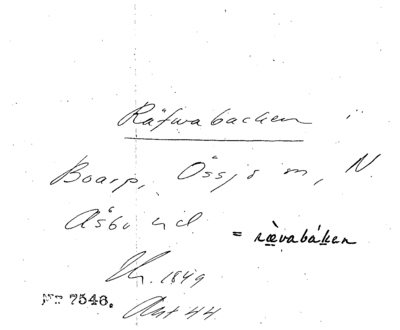 Räfvabacken i
Boarp, Össjö sn, N.
Åsbo hd.
= rævabáken
1849
№ 7546.
Akt 44.